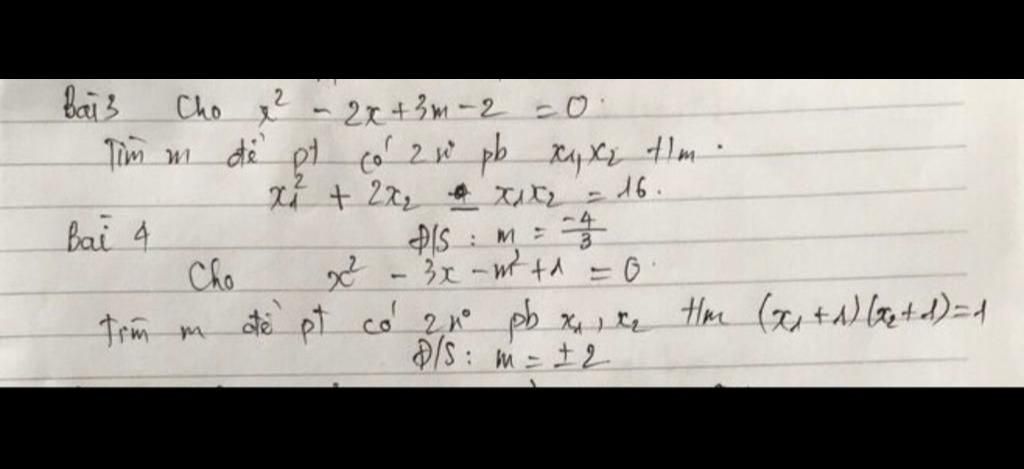 Bài 3 Cho x² - 2x + 3m - 2 = 0.
Tìm m để pt có 2 n⁰ pb x₁, x₂ t/m.
x₁² + 2x₂ - x₁x₂ = 16.
Đ/S : m = -4/3
Bài 4
Cho x² - 3x - m² + 1 = 0.
Tìm m để pt có 2 n⁰ pb x₁, x₂ t/m (x₁ + 1)(x₂ + 1) = 1
Đ/S : m = ± 2